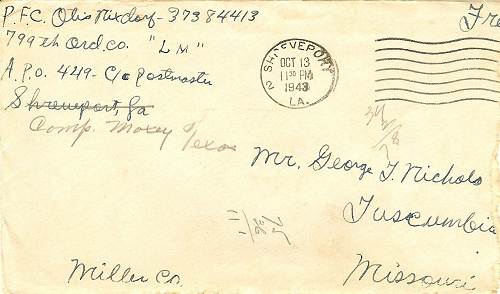 P.F.C. Olis Nixdorf - 37384413
799th Ord. Co. "L M"
A.P.O. 449 - C/o Postmaster
Shreveport, La
Camp. Maxey, Texas
Fre
SHREVEPORT
2
OCT 13
11 30 PM
1943
LA.
Mr. George T. Nichols
Tuscumbia
Missouri
Miller Co.